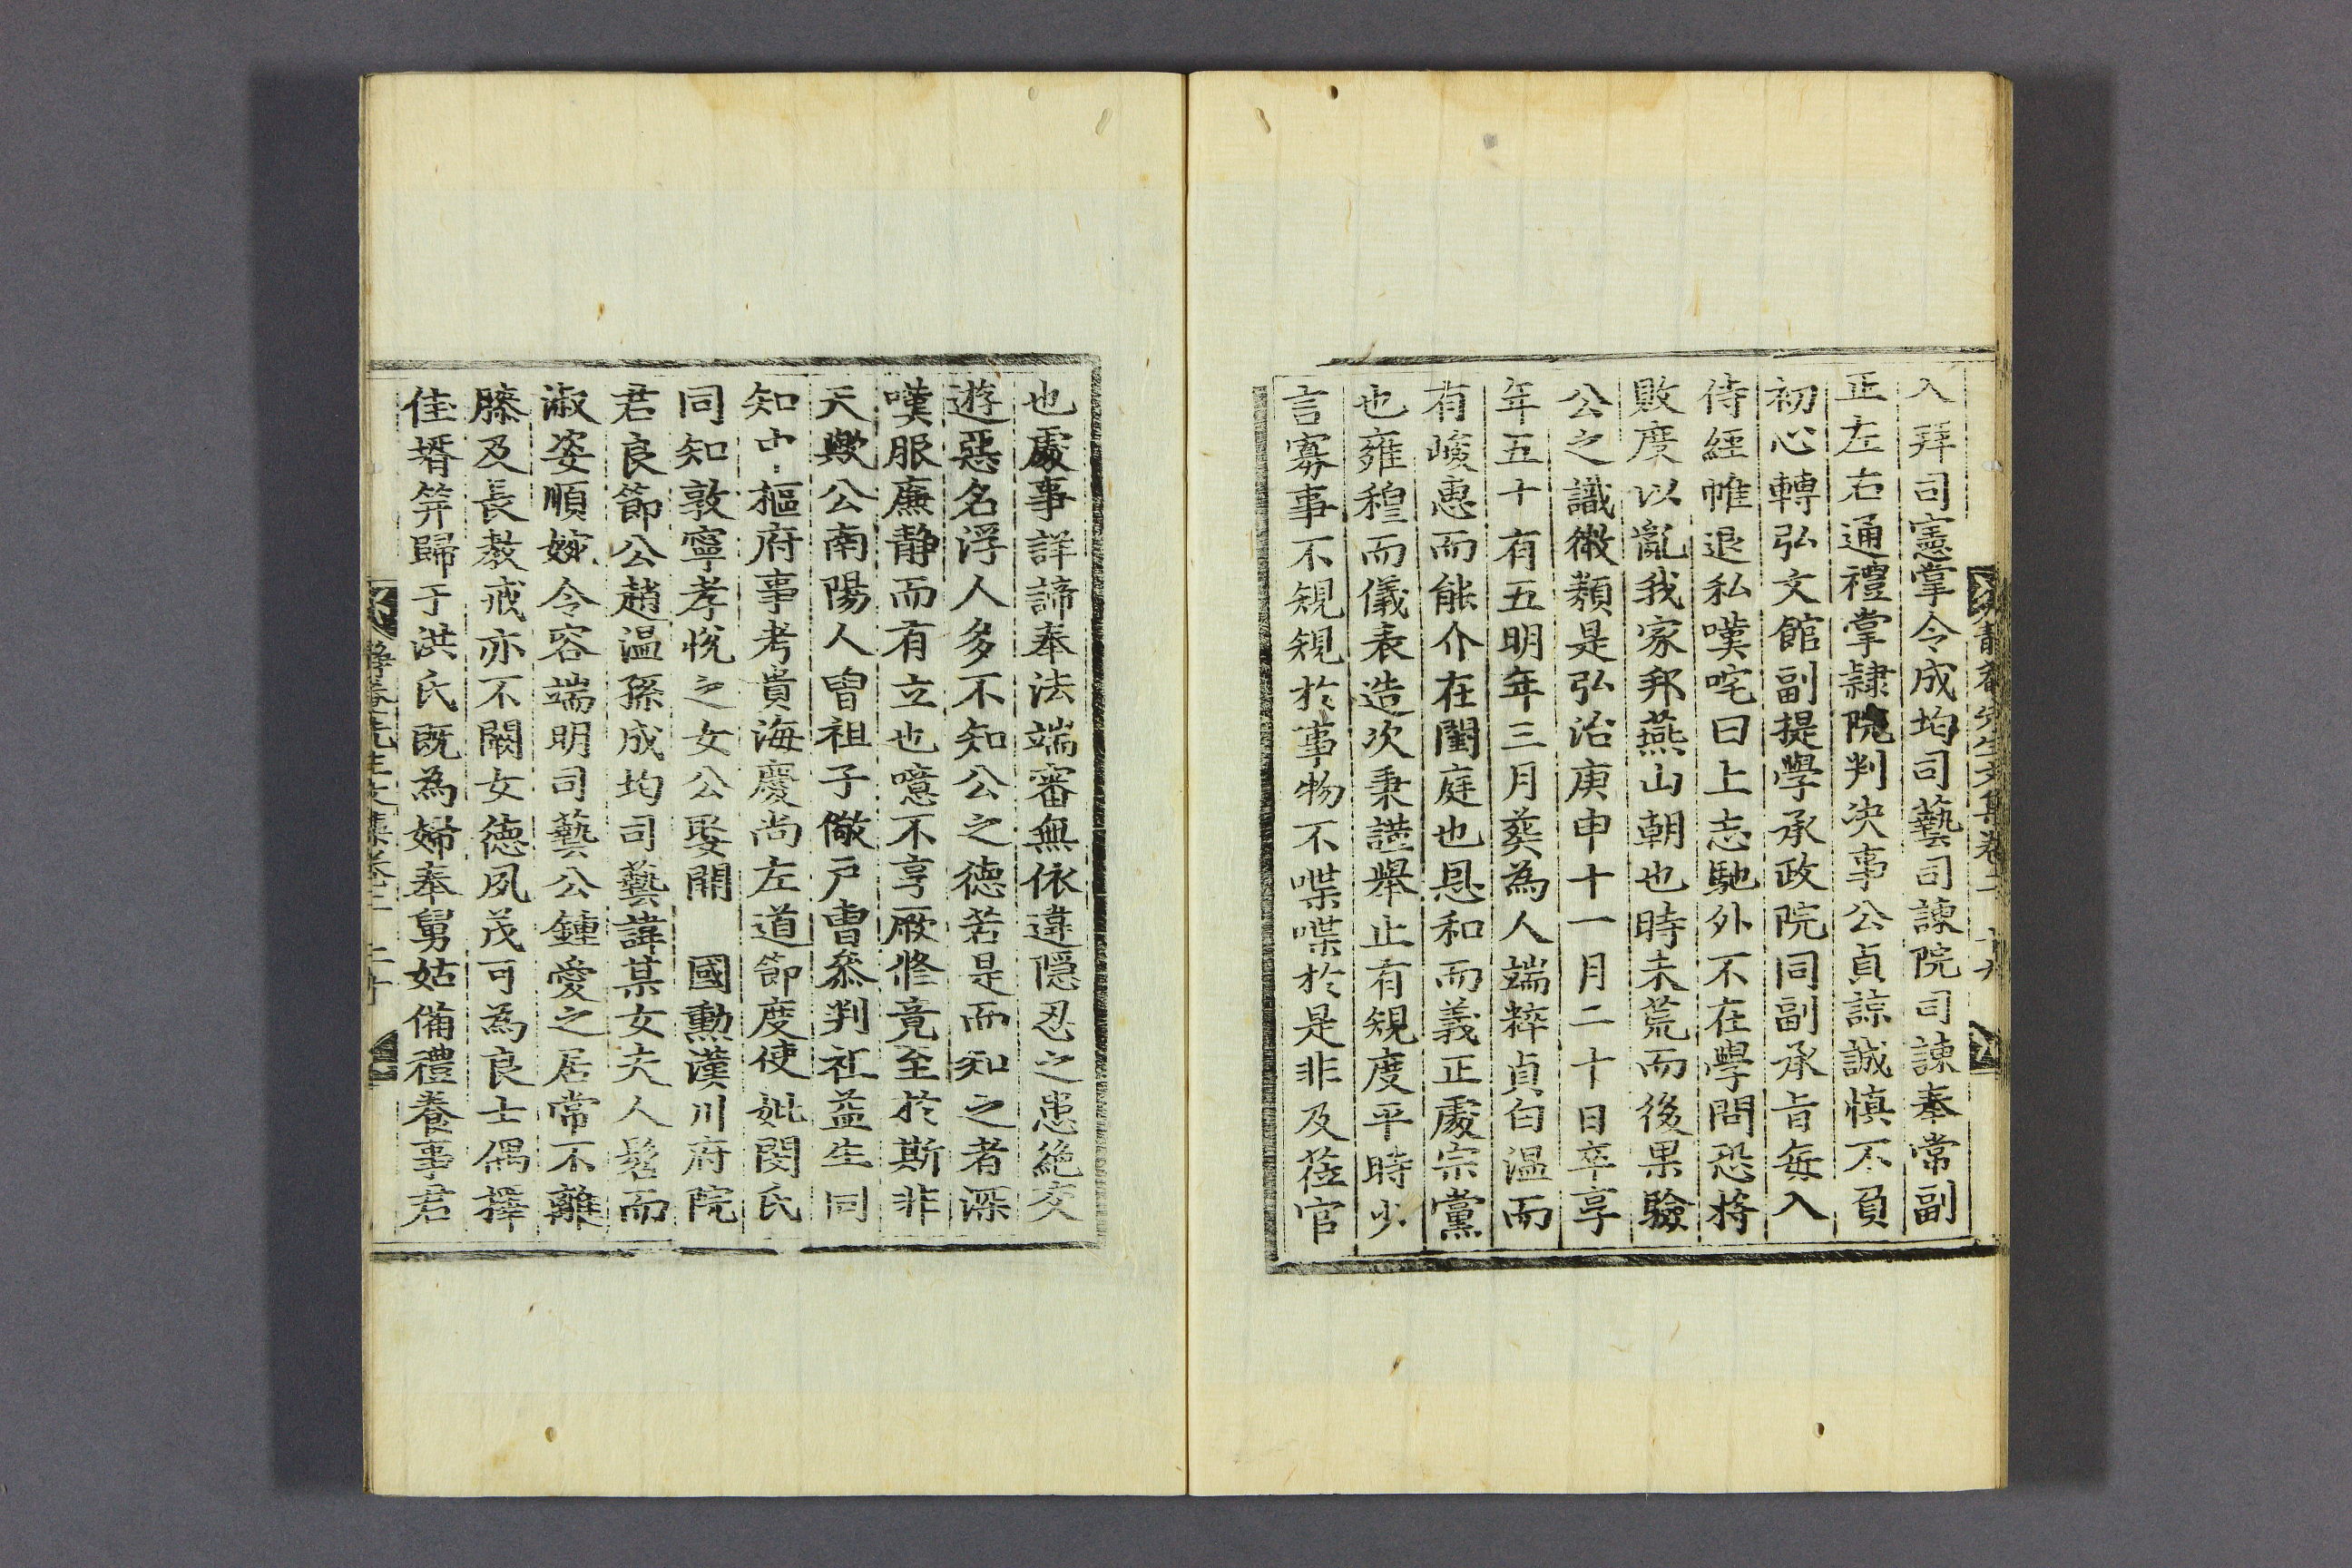 入拜司憲掌令成均司藝司諫院司諫奉常副
正左右通禮掌隷院判决事公貞諒誠慎不負
初心轉弘文館副提學承政院同副承旨每入
侍經帷退私嘆咤曰上志馳外不在學問恐將
敗度以亂我家邦燕山朝也時未荒而後果驗
公之識微類是弘治庚申十一月二十日卒享
年五十有五明年三月葬為人端粹貞白溫而
有峻惠而能介在閨庭也恩和而義正處宗黨
也雍穆而儀表造次秉謹舉止有規度平時少
言寡事不規規於事物不喋喋於是非及莅官
也處事詳諦奉法端審無依違隱忍之患絶交
遊惡名浮人多不知公之德若是而知之者深
嘆服廉靜而有立也噫不亨厥修竟至於斯非
天歟公南陽人曾祖子儆戶曹叅判祖益生同
知中樞府事考貴海慶尚左道節度使妣閔氏
同知敦寧孝悅之女公娶開　國勳漢川府院
君良節公趙溫孫成均司藝諱某女夫人髫而
淑姿順婉令容端明司藝公鍾愛之居常不離
膝及長敎戒亦不闕女德夙茂可為良士偶擇
佳壻笄歸于洪氏既為婦奉舅姑備禮養事君